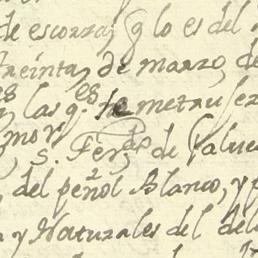 de escorras, q lo es del
treinta, de marzo, de
las q.es te metruser
mor
S. Fer.des de Salue
del peñol Blanco, y p
y Naturales del del